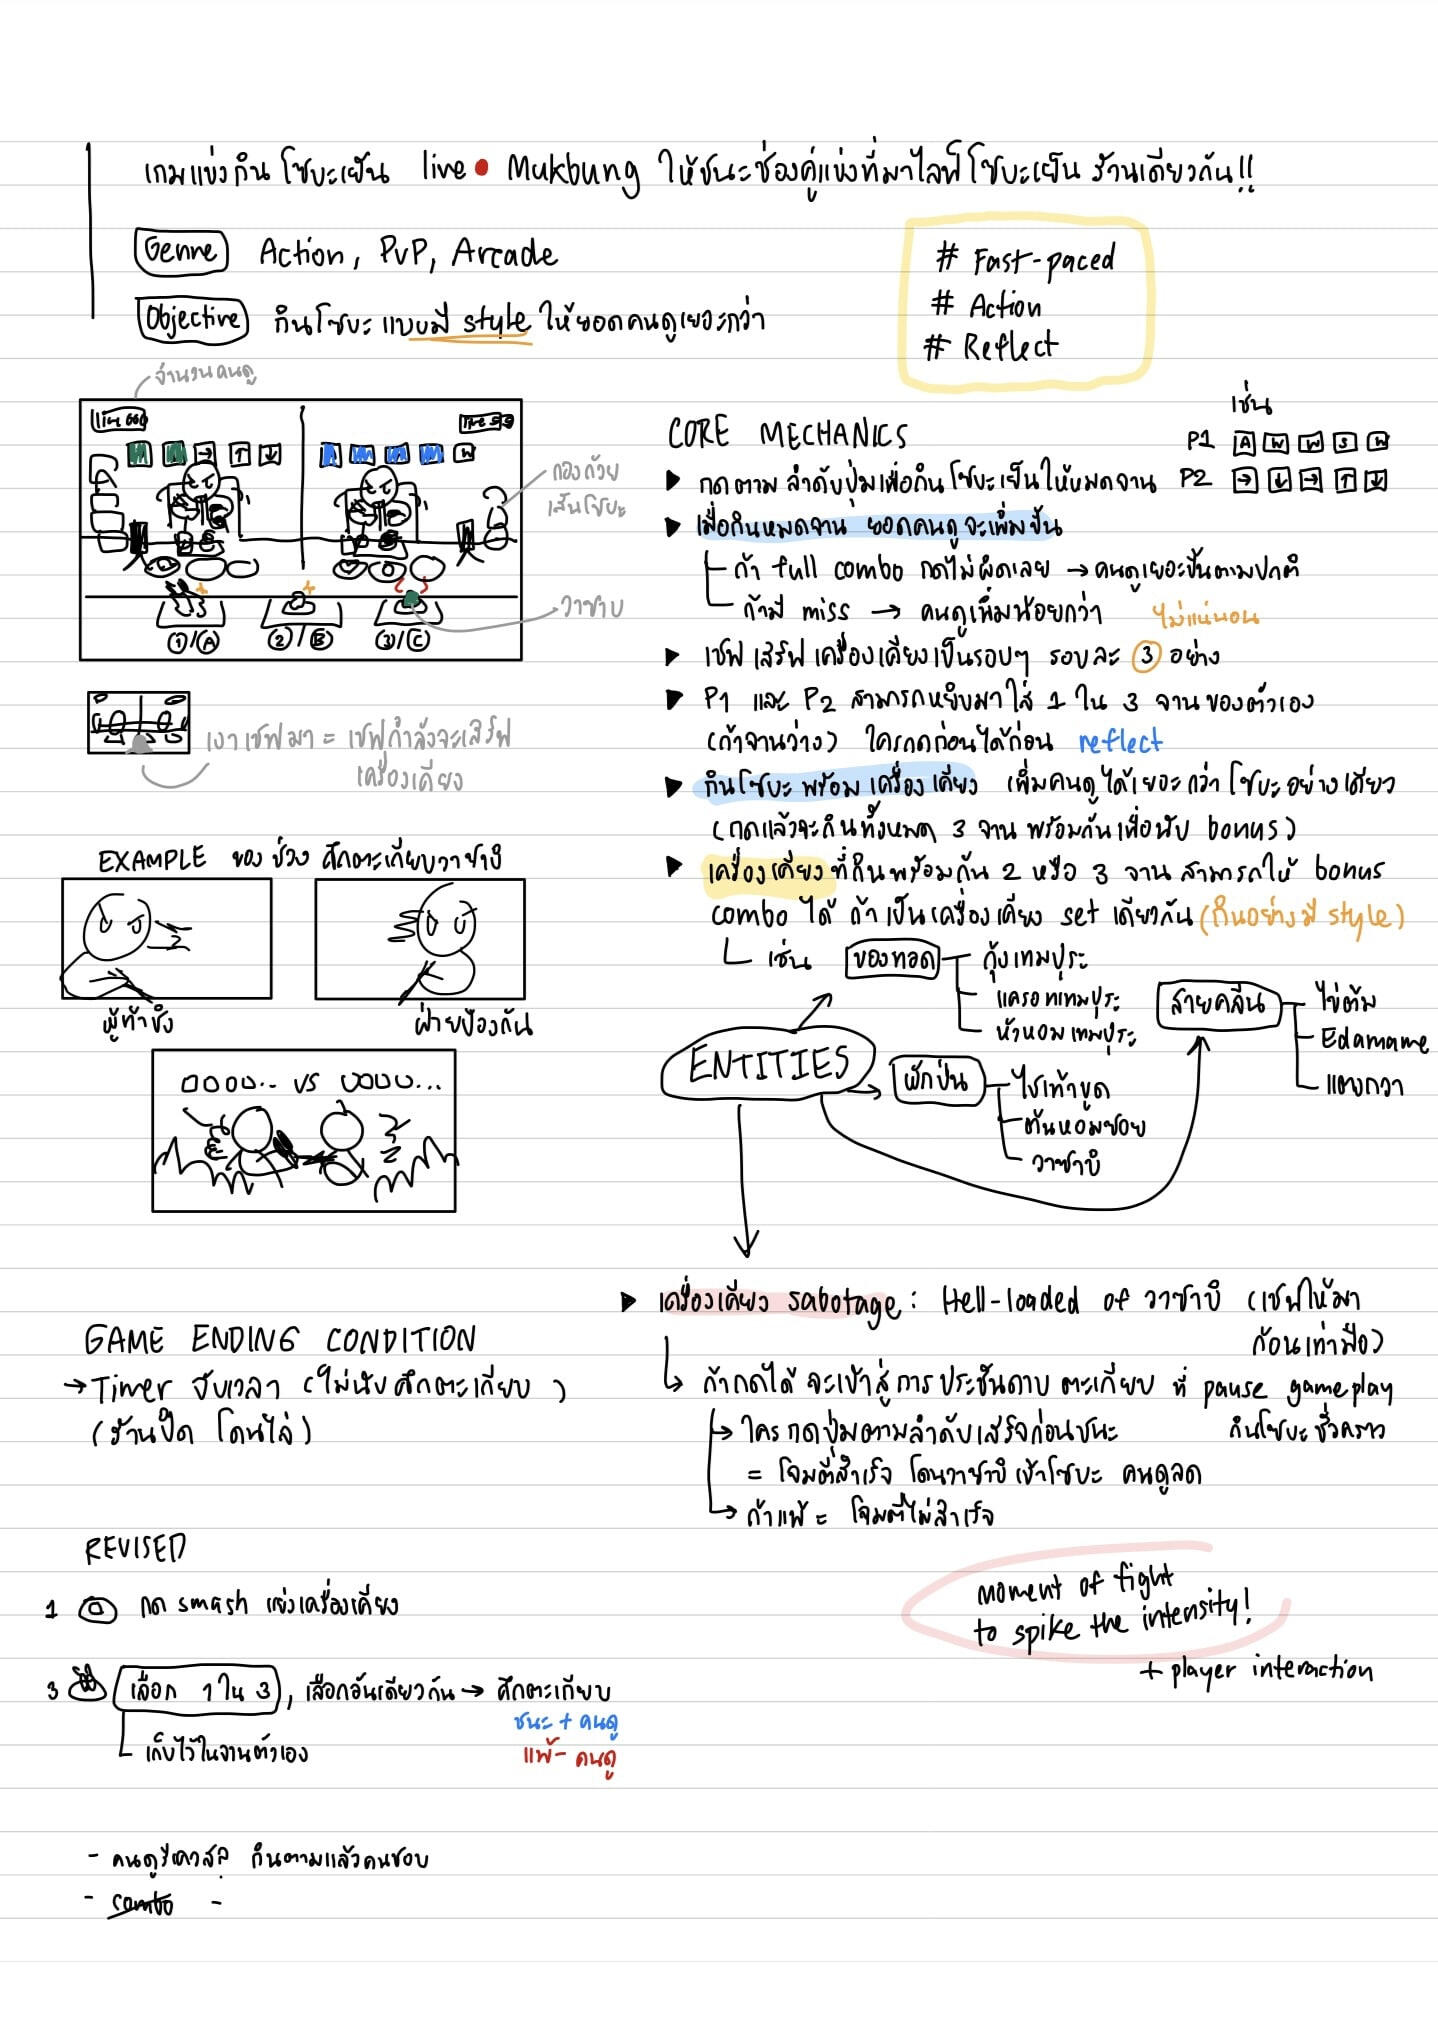 เกมแข่งกินโซบะเย็น live Mukbung ให้ชนะช่องคู่แข่งที่มาไลฟ์โซบะเย็นร้านเดียวกัน!!
Genre Action, PvP, Arcade
Objective กินโซบะแบบมี style ให้ยอดคนดูเยอะกว่า
# Fast-paced
# Action
# Reflect
จำนวนคนดู
กองถ้วย
เส้นโซบะ
วาซาบิ
①/Ⓐ ②/Ⓑ ③/Ⓒ
เงาเชฟมา = เชฟกำลังจะเสิร์ฟ
เครื่องเคียง
EXAMPLE ของช่วง ศึกตะเกียบวาซาบิ
ผู้ท้าชิง
ฝ่ายป้องกัน
VS
CORE MECHANICS
เช่น
P1 A W W S W
P2 → ↓ → ↑ ↓
▶ กดตามลำดับปุ่มเพื่อกินโซบะเย็นให้หมดจาน
▶ เมื่อกินหมดจาน ยอดคนดูจะเพิ่มขึ้น
ถ้า full combo กดไม่ผิดเลย → คนดูเยอะขึ้นตามปกติ
ถ้ามี miss → คนดูเพิ่มน้อยกว่า ไม่แน่นอน
▶ เชฟเสิร์ฟเครื่องเคียงเป็นรอบๆ รอบละ 3 อย่าง
▶ P1 และ P2 สามารถหยิบมาใส่ 1 ใน 3 จานของตัวเอง
(ถ้าจานว่าง) ใครกดก่อนได้ก่อน reflect
▶ กินโซบะพร้อมเครื่องเคียง เพิ่มคนดูได้เยอะกว่าโซบะอย่างเดียว
(กดแล้วจะกินทั้งหมด 3 จานพร้อมกันเพื่อนับ bonus)
▶ เครื่องเคียงที่กินพร้อมกัน 2 หรือ 3 จานสามารถให้ bonus
combo ได้ ถ้าเป็นเครื่องเคียง set เดียวกัน (กินอย่างมี style)
เช่น ของทอด กุ้งเทมปุระ
แครอทเทมปุระ
หัวหอมเทมปุระ
สายคลีน ไข่ต้ม
Edamame
แตงกวา
ENTITIES
ผักป่น ไชเท้าขูด
ต้นหอมซอย
วาซาบิ
▶ เครื่องเคียง sabotage : Hell-loaded of วาซาบิ (เชฟให้มา
ก้อนเท่ามือ)
ถ้ากดได้ จะเข้าสู่การประชันดาบตะเกียบ ที่ pause gameplay
กินโซบะชั่วคราว
ใครกดปุ่มตามลำดับเสร็จก่อนชนะ
= โจมตีสำเร็จ โดนวาซาบิเข้าโซบะ คนดูลด
ถ้าแพ้ = โจมตีไม่สำเร็จ
moment of fight
to spike the intensity!
+ player interaction
GAME ENDING CONDITION
→ Timer จับเวลา (ไม่นับศึกตะเกียบ)
(ร้านปิด โดนไล่)
REVISED
1 กด smash แย่งเครื่องเคียง
3 เลือก 1 ใน 3, เลือกอันเดียวกัน → ศึกตะเกียบ
ชนะ + คนดู
แพ้ - คนดู
เก็บไว้ในจานตัวเอง
- คนดู กินตามแล้วคนชอบ
- combo -